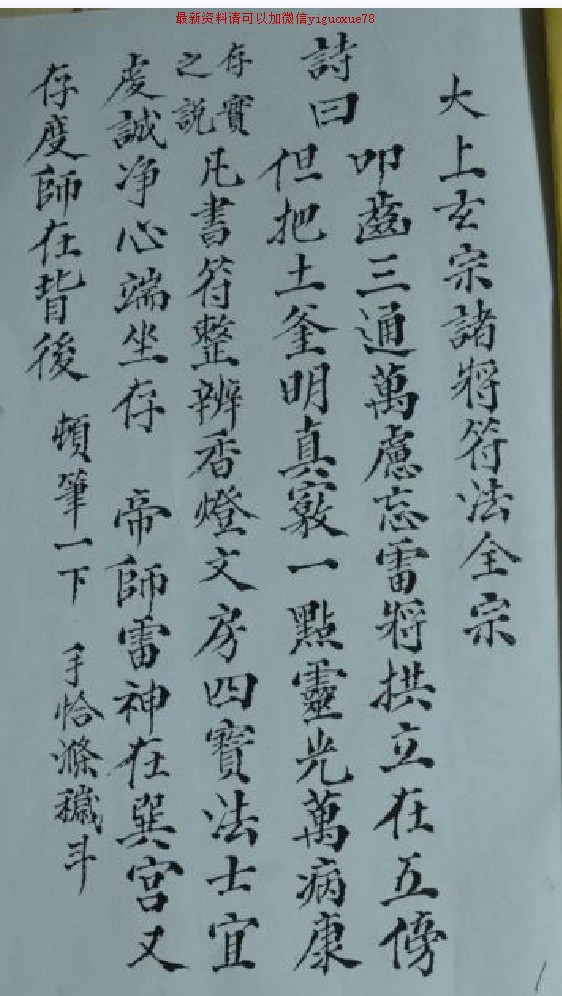 最新资料请可以加微信yiguoxue78
大上玄宗諸将符法全宗
詩曰
叩齒三通萬慮忘雷将拱立在五傍
但把土釜明真竅一點靈光萬病康
存實之說
凡書符整辨香燈文房四寶法士宜
虔誠净心端坐存 帝師雷神在巽宫又
存度師在背後 頓筆一下 手恰滌穢斗
1